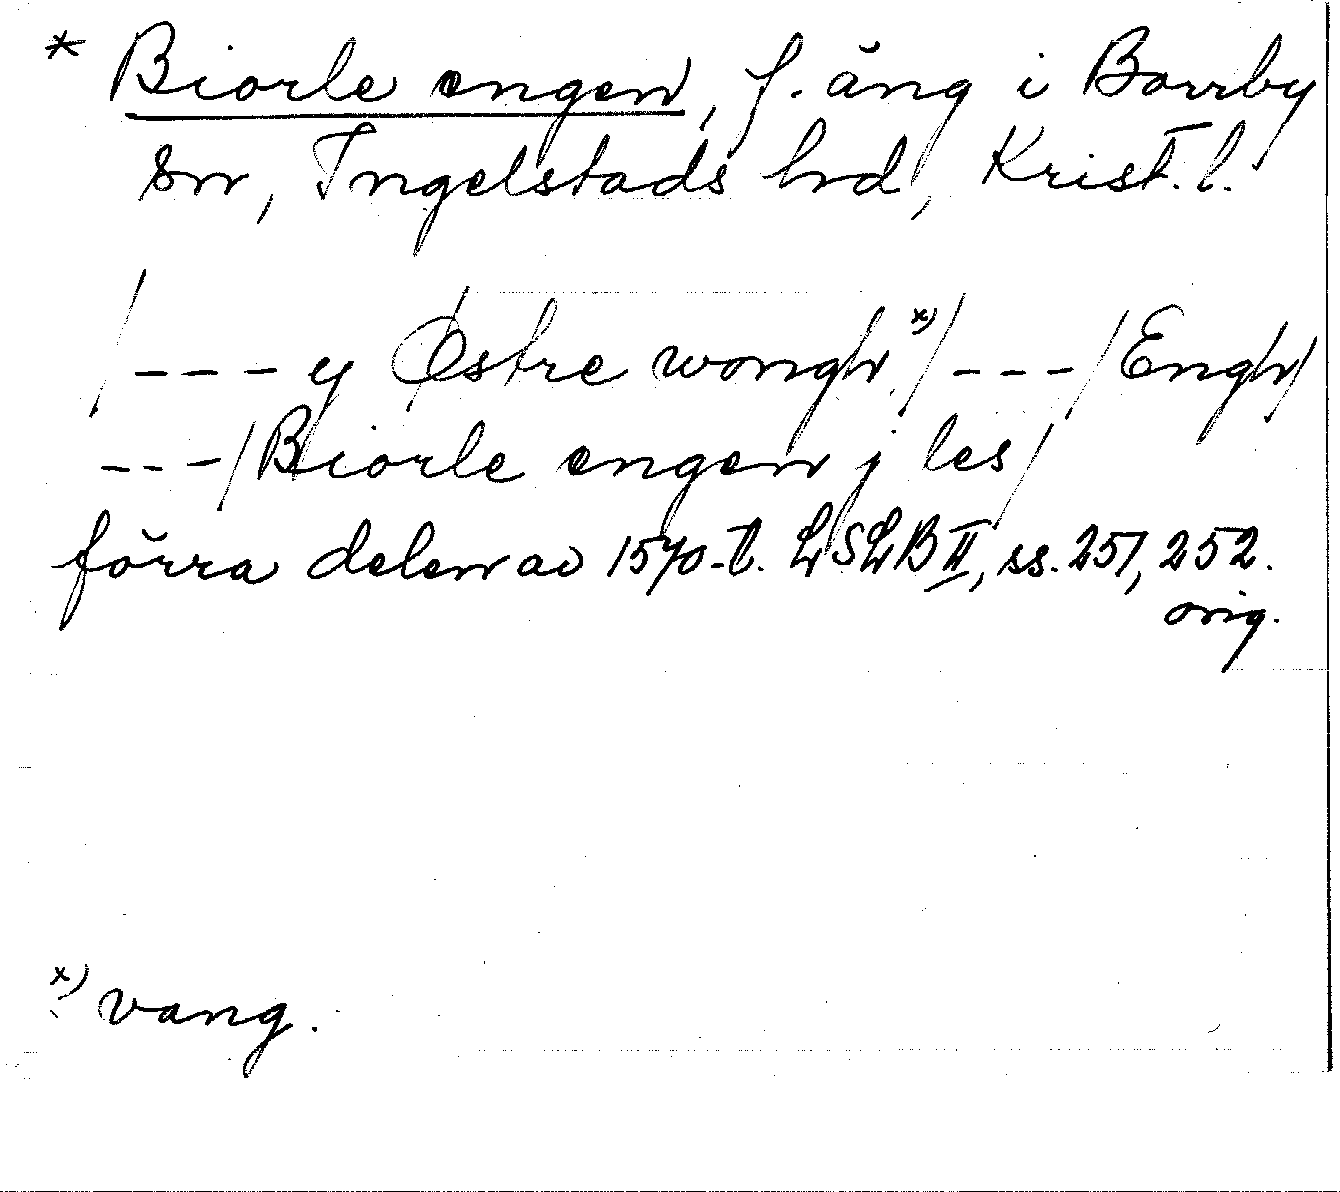 * Biorle engen, f. äng i Borrby
sn, Ingelstads hd, Krist. l.
/ - - - y Østre wongh x) / - - - / Engh /
- - - / Biorle engen j les /
förra delen av 1570-t. LSLB II, ss. 251, 252.
orig.
x) vang.